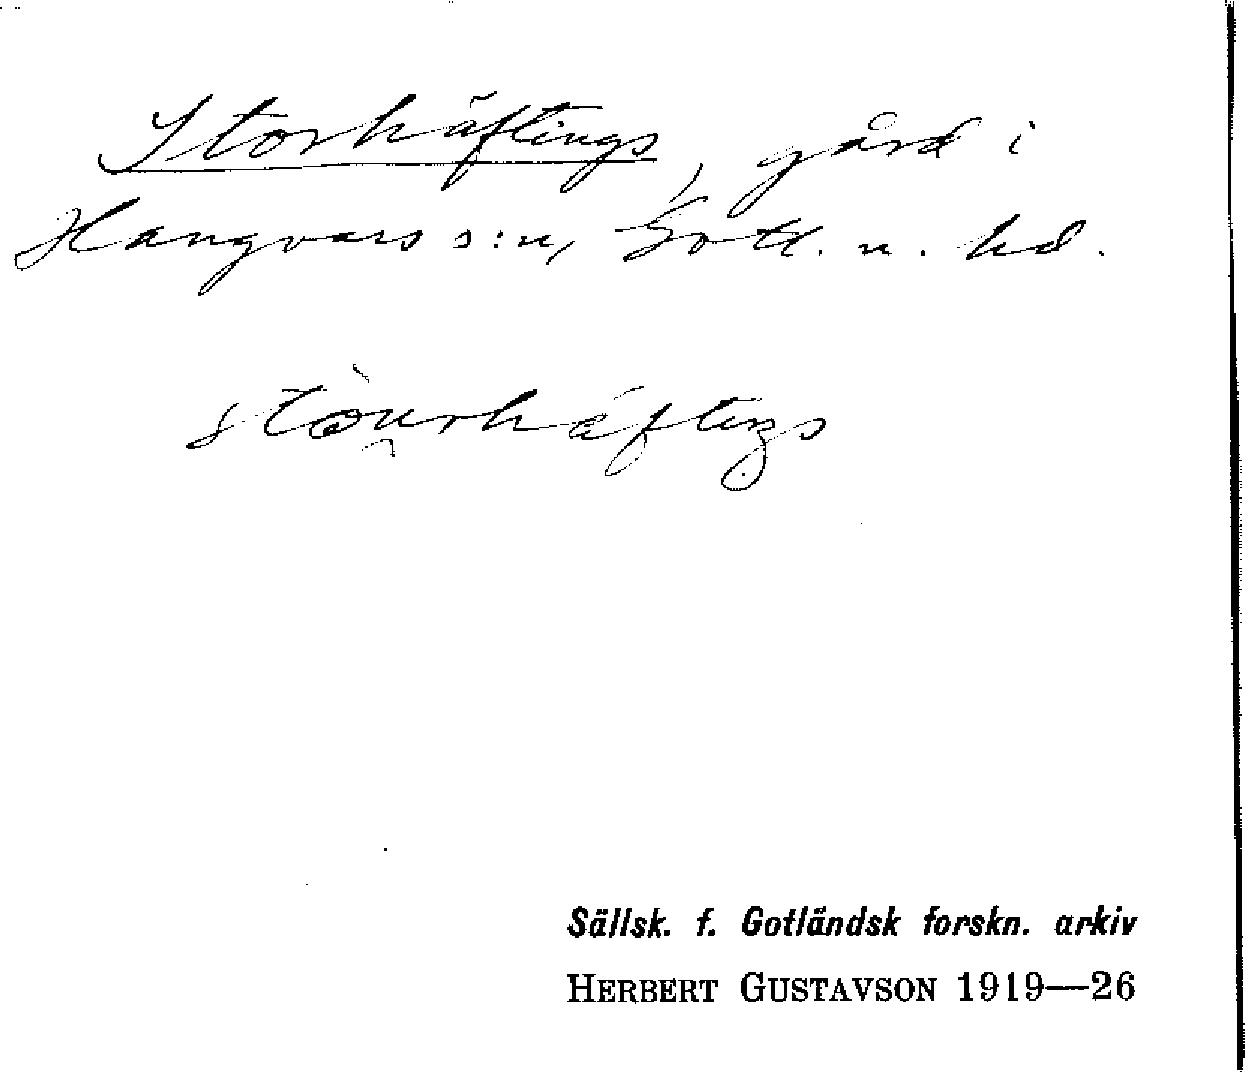 Storhäftings, gård i
Hangvars s:n, Gotl. n. hd.
Sällsk. f. Gotländsk forskn. arkiv
HERBERT GUSTAVSON 1919—26